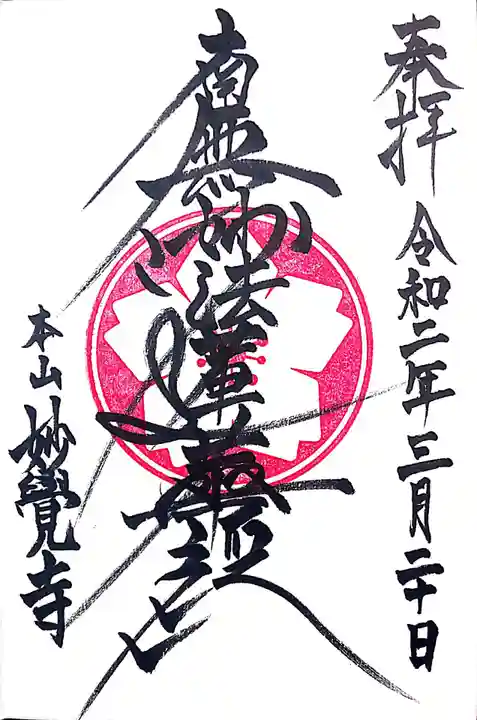 奉拝 令和二年三月二十日
南無妙法蓮華経
本山 妙覺寺